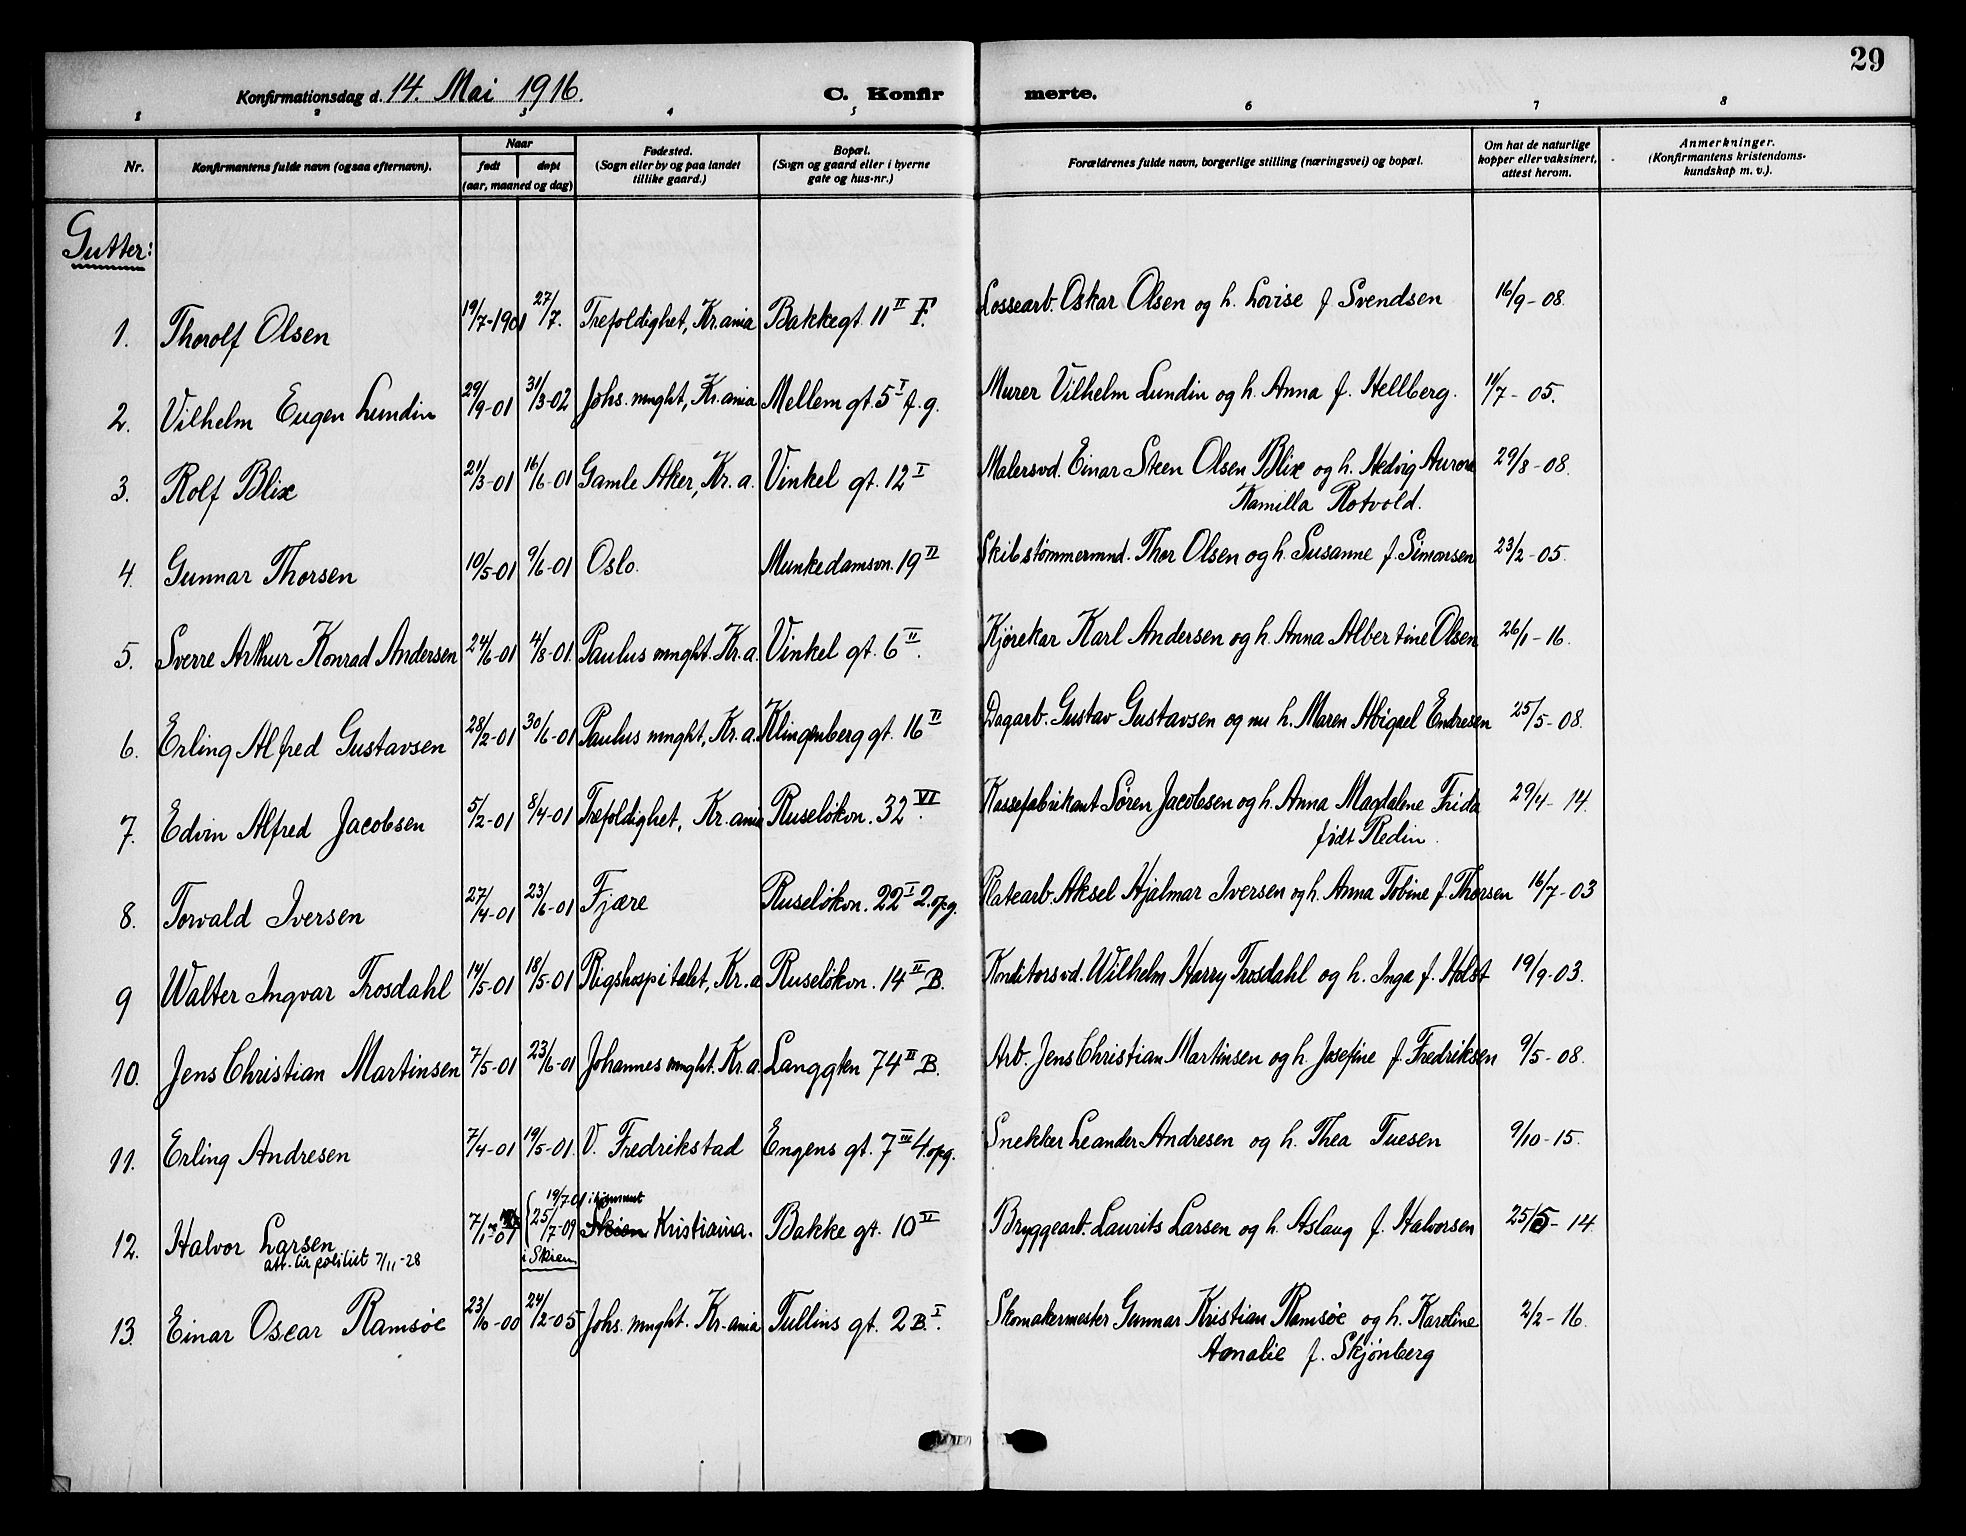 29
Konfirmationsdag d. 14. Mai 1916. C. Konfir merte.
1 2 3 4 5 6 7 8
Nr. Konfirmantens fulde navn (ogsaa efternavn). Naar født døpt (aar, maaned og dag) Fødested. (Sogn eller by og paa landet tillike gaard.) Bopæl. (Sogn og gaard eller i byerne gate og hus-nr.) Forældrenes fulde navn, borgerlige stilling (næringsvei) og bopæl. Om hat de naturlige kopper eller vaksinert, attest herom. Anmerkninger. (Konfirmantens kristendoms-kundskap m. v.).
Gutter:
1. Thorolf Olsen 19/7-1901 27/7. Trefoldighet, Kr.ania Bakkegt. 11 II F. Lossearb. Oskar Olsen og h. Lovise f Svendsen 16/9-08.
2. Vilhelm Eugen Lundin 29/9-01 31/3-02 Johs. mnght, Kr.ania Mellem gt. 5 I f.g. Murer Vilhelm Lundin og h. Anna f. Hellberg. 11/7-05.
3. Rolf Blix 21/3-01 16/6-01 Gamle Aker, Kr.a. Vinkel gt. 12 I Malersvd. Einar Steen Olsen Blix og h. Hedvig Aurora 29/8-08.
Kamilla Rotvold.
4. Gunnar Thorsen 10/5-01 9/6-01 Oslo. Munkedamsvn. 19 II Skibstømmermnd. Thor Olsen og h. Susanne f. Simonsen 23/2-05.
5. Sverre Arthur Konrad Andersen 24/6-01 4/8-01. Paulus mnght. Kr.a. Vinkel gt. 6 II. Kjørekar Karl Andersen og h. Anna Albertine Olsen 26/1-16.
6. Erling Alfred Gustavsen 28/2-01 30/6-01 Paulus mnght, Kr.a. Klingenberg gt. 16 II Dagarb. Gustav Gustavsen og nu h. Maren Abigael Endresen 25/5-08.
7. Edvin Alfred Jacobsen 5/2-01 8/4-01 Trefoldighet, Kr.ania Ruseløkvn. 32 VI. Kassefabrikant Søren Jacobsen og h. Anna Magdalene Frida 29/4-14.
født Redin.
8. Torvald Iversen 27/4-01 23/6-01 Fjære Ruseløkvn. 22 I 2.opg. Platearb. Aksel Hjalmar Iversen og h. Anna Tobine f. Thorsen 16/7-03
9 Walter Ingvar Trosdahl 14/5-01 18/5-01 Rigshospitalet, Kr.a Ruseløkvn. 14 II B. Konditorsvd. Wilhelm Harry Trosdahl og h. Inga f. Holst 19/9-03.
10. Jens Christian Martinsen 7/5-01 23/6-01 Johannes mnght. Kr.a. Langgten 74 II B. Arb. Jens Christian Martinsen og h. Josefine f. Fredriksen 9/5-08.
11. Erling Andresen 7/4-01 19/5-01. V. Fredrikstad Engens gt. 7 III 4.opg. Snekker Leander Andresen og h. Thea Tuesen 9/10-15.
19/7-01 i hjemmet
12. Halvor Larsen 7/1-01 25/7-09 Skien Kristiania. Bakke gt. 10 II Bryggearb. Laurits Larsen og h. Aslaug f. Halvorsen 25/5-14
att. til politiet 7/11-28 i Skien
13. Einar Oscar Ramsøe 23/6-00 24/2-05 Johs. mnght. Kr.ania Tullins gt. 2 B. I. Skomakermester Gunnar Kristian Ramsøe og h. Karoline 2/2-16.
Amalie f. Skjønberg